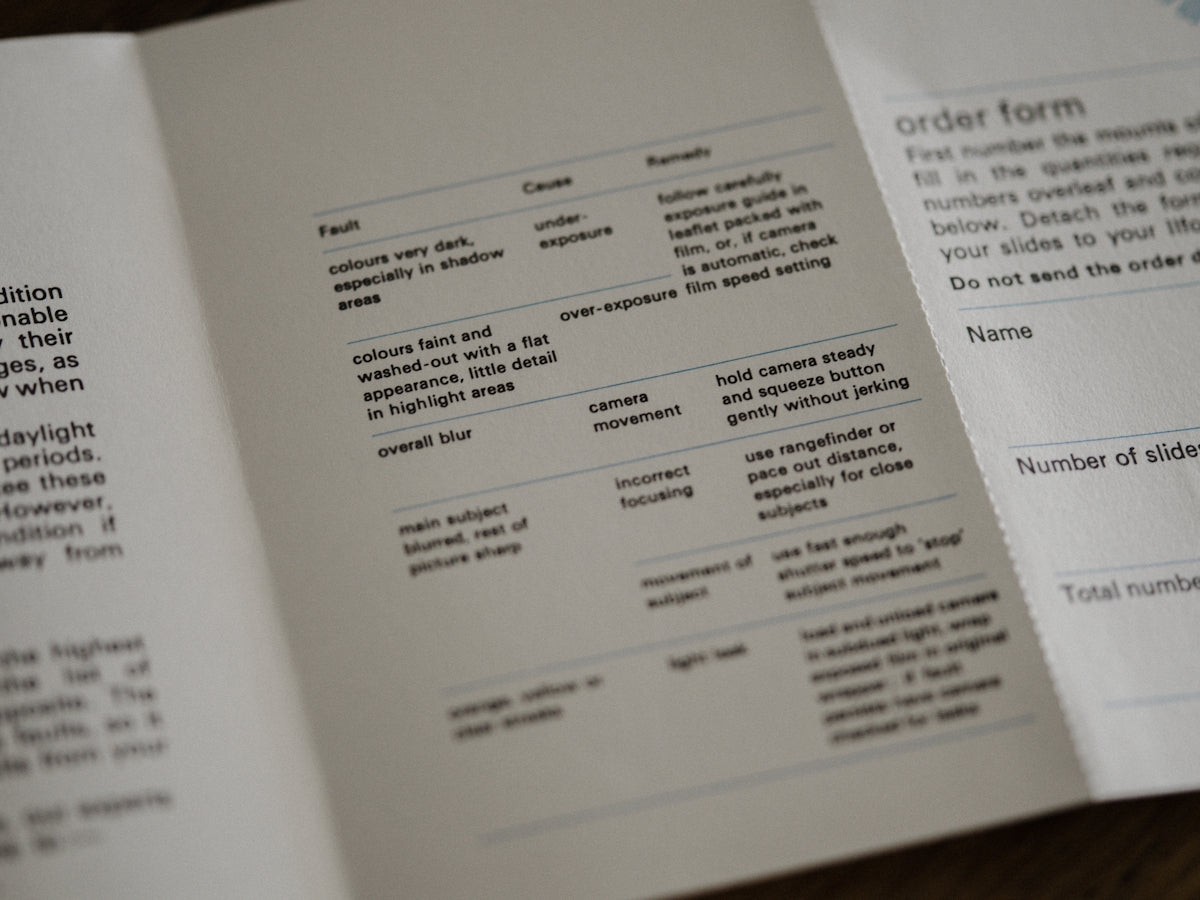 dition
nable
their
ges, as
when
daylight
periods.
ee these
However,
ndition if
way from
the highest
the list of
The
faults, so it
from your
Fault
Cause
Remedy
colours very dark,
especially in shadow
areas
under-
exposure
follow carefully
exposure guide in
leaflet packed with
film, or, if camera
is automatic, check
film speed setting
colours faint and
washed-out with a flat
appearance, little detail
in highlight areas
over-exposure
overall blur
camera
movement
hold camera steady
and squeeze button
gently without jerking
main subject
blurred, rest of
picture sharp
incorrect
focusing
use rangefinder or
pace out distance,
especially for close
subjects
movement of
subject
use fast enough
shutter speed to 'stop'
subject movement
orange, yellow or
light leak
load and unload camera
in subdued light, wrap
exposed film in original
if fault
camera
order form
First number the mounts
fill in the quantities
numbers overleaf and
below. Detach the form
your slides to your
Do not send the order
Name
Number of slides
Total numbe